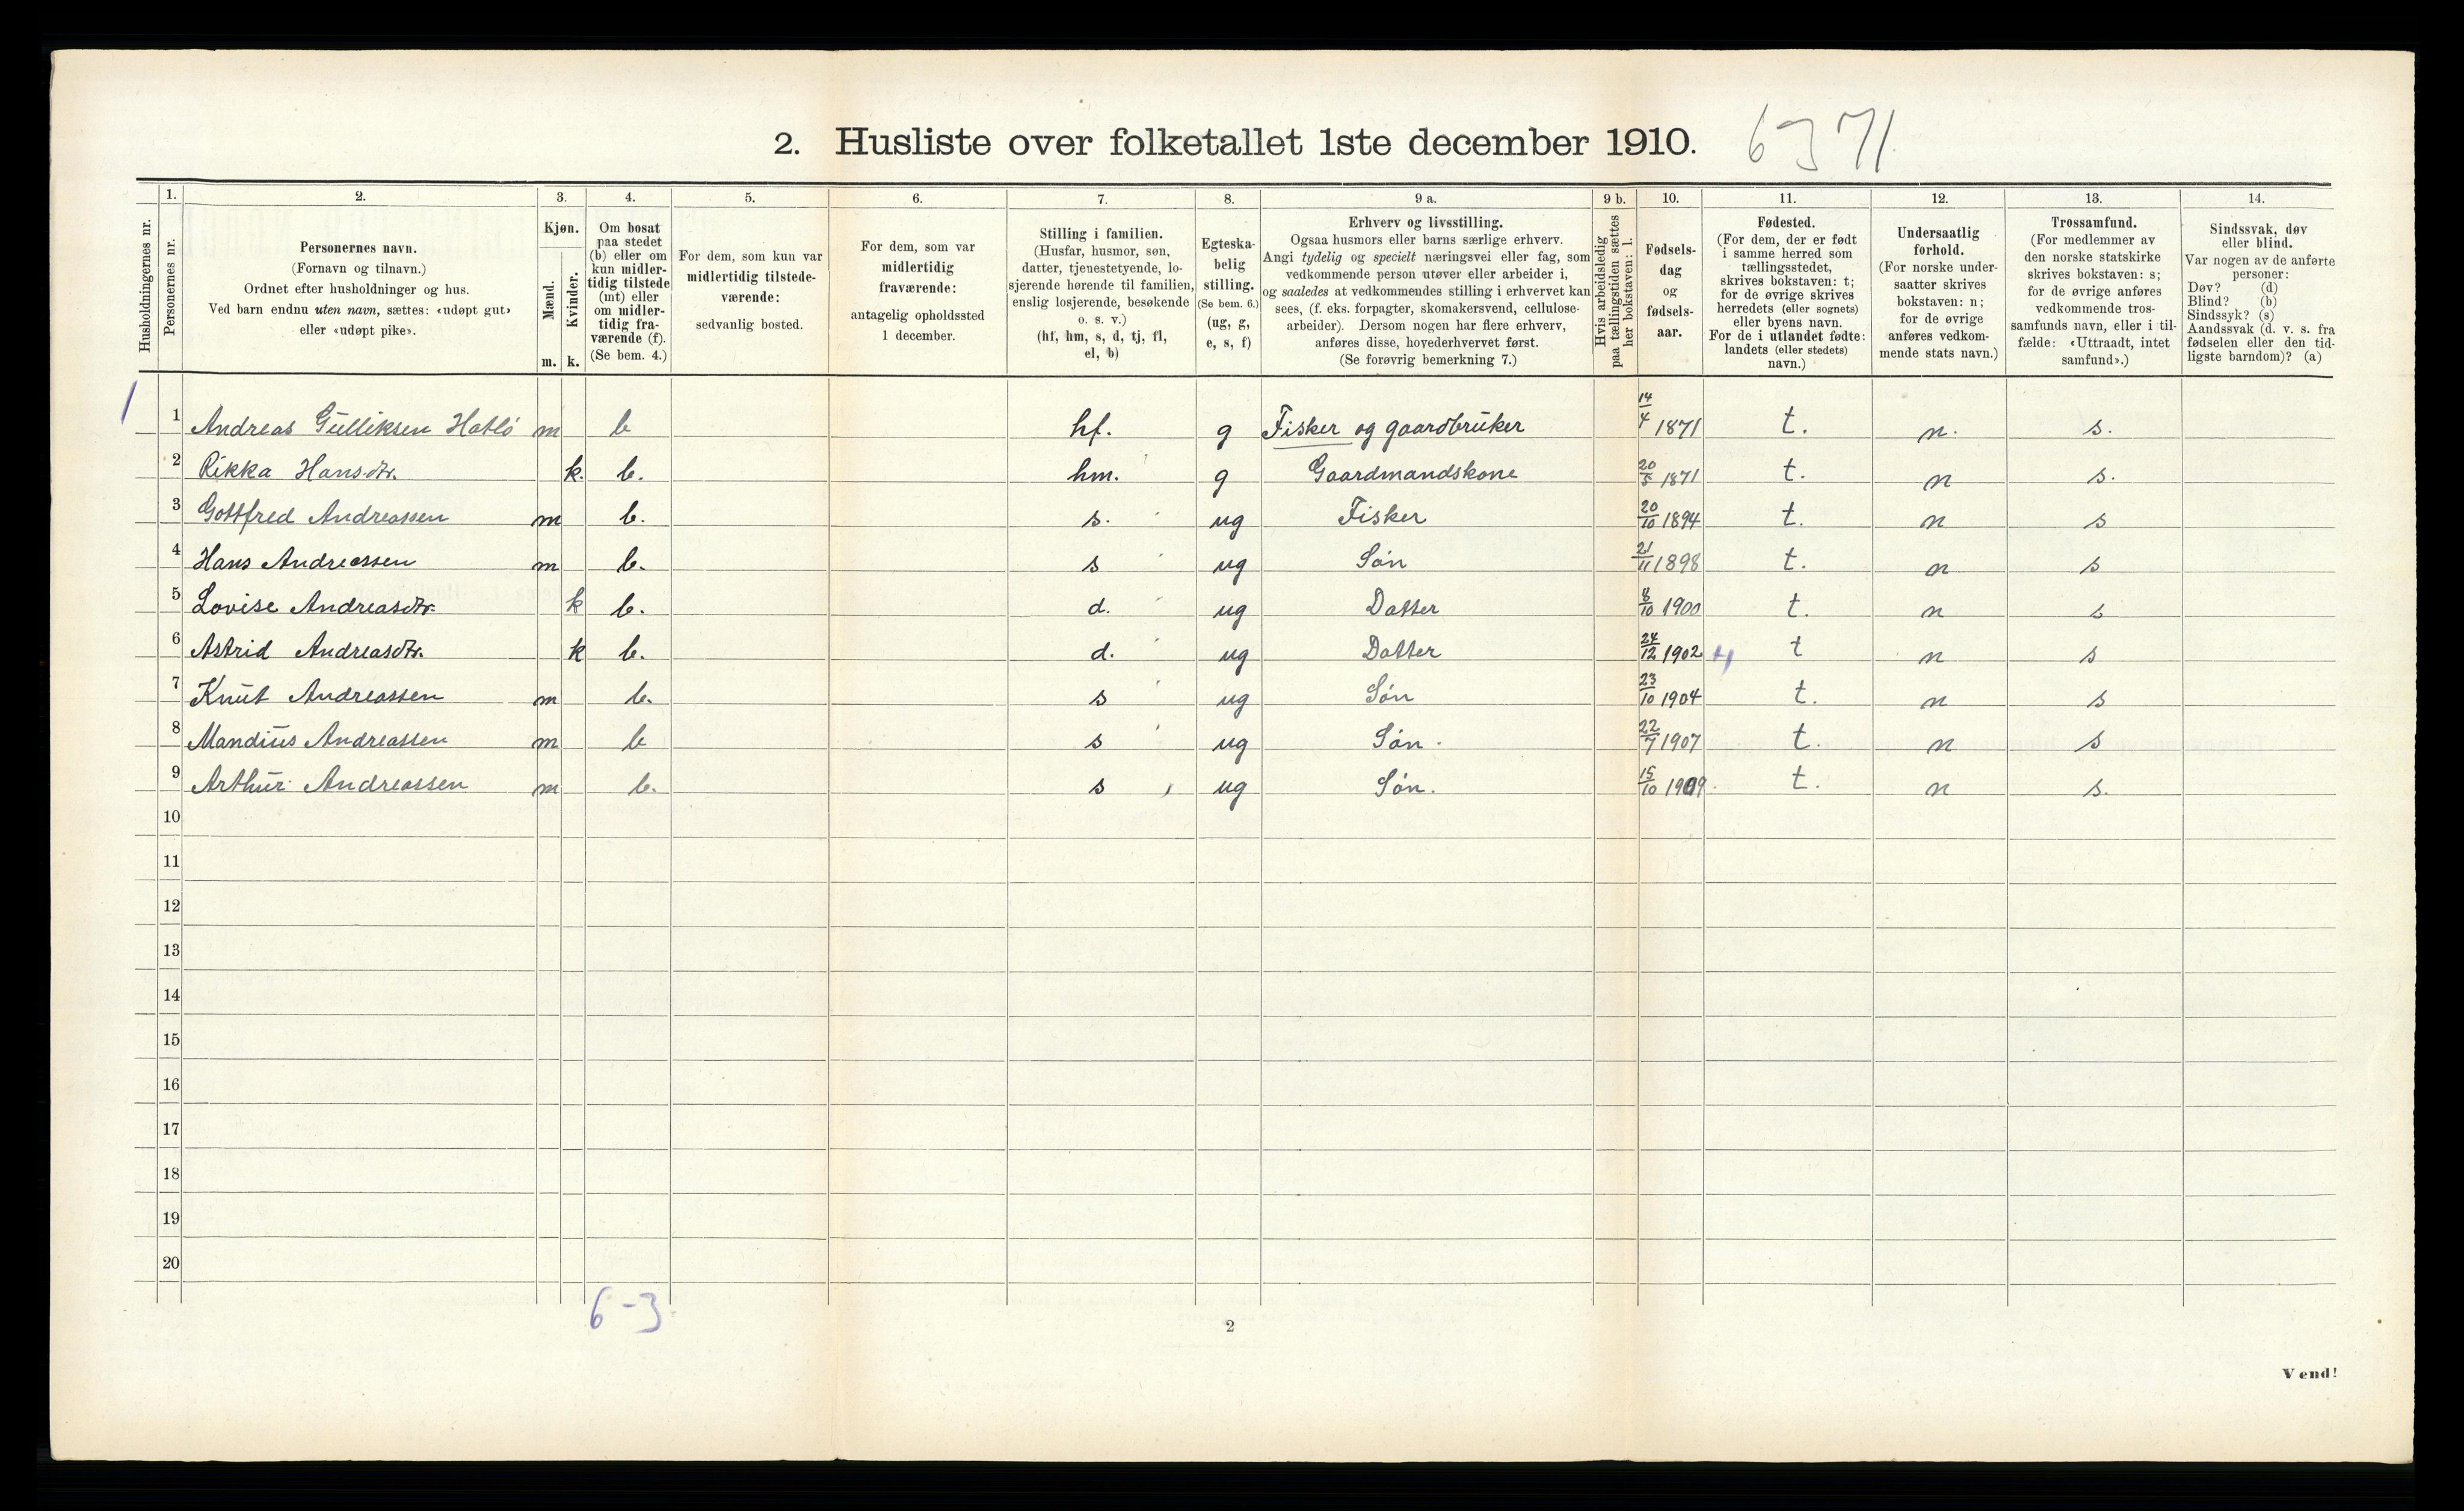 2. Husliste over folketallet 1ste december 1910. 6371
Husholdningernes nr.
1.
Personernes nr.
2.
Personernes navn.
(Fornavn og tilnavn.)
Ordnet efter husholdninger og hus.
Ved barn endnu uten navn, sættes: «udøpt gut»
eller «udøpt pike».
3.
Kjøn.
Mænd.
Kvinder.
m. k.
4.
Om bosat
paa stedet
(b) eller om
kun midler-
tidig tilstede
(mt) eller
om midler-
tidig fra-
værende (f).
(Se bem. 4.)
5.
For dem, som kun var
midlertidig tilstede-
værende:
sedvanlig bosted.
6.
For dem, som var
midlertidig
fraværende:
antagelig opholdssted
1 december.
7.
Stilling i familien.
(Husfar, husmor, søn,
datter, tjenestetyende, lo-
sjerende hørende til familien,
enslig losjerende, besøkende
o. s. v.)
(hf, hm, s, d, tj, fl,
el, b)
8.
Egteska-
belig
stilling.
(Se bem. 6.)
(ug, g,
e, s, f)
9 a.
Erhverv og livsstilling.
Ogsaa husmors eller barns særlige erhverv.
Angi tydelig og specielt næringsvei eller fag, som
vedkommende person utøver eller arbeider i,
og saaledes at vedkommendes stilling i erhvervet kan
sees, (f. eks. forpagter, skomakersvend, cellulose-
arbeider). Dersom nogen har flere erhverv,
anføres disse, hovederhvervet først.
(Se forøvrig bemerkning 7.)
9 b.
Hvis arbeidsledig
paa tællingstiden sættes
her bokstaven: l.
10.
Fødsels-
dag
og
fødsels-
aar.
11.
Fødested.
(For dem, der er født
i samme herred som
tællingsstedet,
skrives bokstaven: t;
for de øvrige skrives
herredets (eller sognets)
eller byens navn.
For de i utlandet fødte:
landets (eller stedets)
navn.)
12.
Undersaatlig
forhold.
(For norske under-
saatter skrives
bokstaven: n;
for de øvrige
anføres vedkom-
mende stats navn.)
13.
Trossamfund.
(For medlemmer av
den norske statskirke
skrives bokstaven: s;
for de øvrige anføres
vedkommende tros-
samfunds navn, eller i til-
fælde: «Uttraadt, intet
samfund».)
14.
Sindssvak, døv
eller blind.
Var nogen av de anførte
personer:
Døv? (d)
Blind? (b)
Sindssyk? (s)
Aandssvak (d. v. s. fra
fødselen eller den tid-
ligste barndom)? (a)
1 1 Andreas Gulliksen Hatlø m b hf. g Fisker og gaardbruker 14/4 1871 t. n. s.
2 Rikka Hansdtr. k. b. hm. g Gaardmandskone 20/5 1871 t. n s.
3 Gottfred Andreassen m b. s. ug Fisker 20/10 1894 t. n s
4 Hans Andreassen m b. s ug Søn 21/11 1898 t. n s
5 Lovise Andreasdtr. k b. d. ug Datter 8/10 1900 t. n s
6 Astrid Andreasdtr. k b. d. ug Datter 24/12 1902 4 t n s
7 Knut Andreassen m b. s ug Søn 23/10 1904 t. n s
8 Mandius Andreassen m b s ug Søn. 22/7 1907 t. n s
9 Arthur Andreassen m b. s ug Søn. 15/10 1909. t. n s.
10
11
12
13
14
15
16
17
18
19
20
6-3
2
Vend!